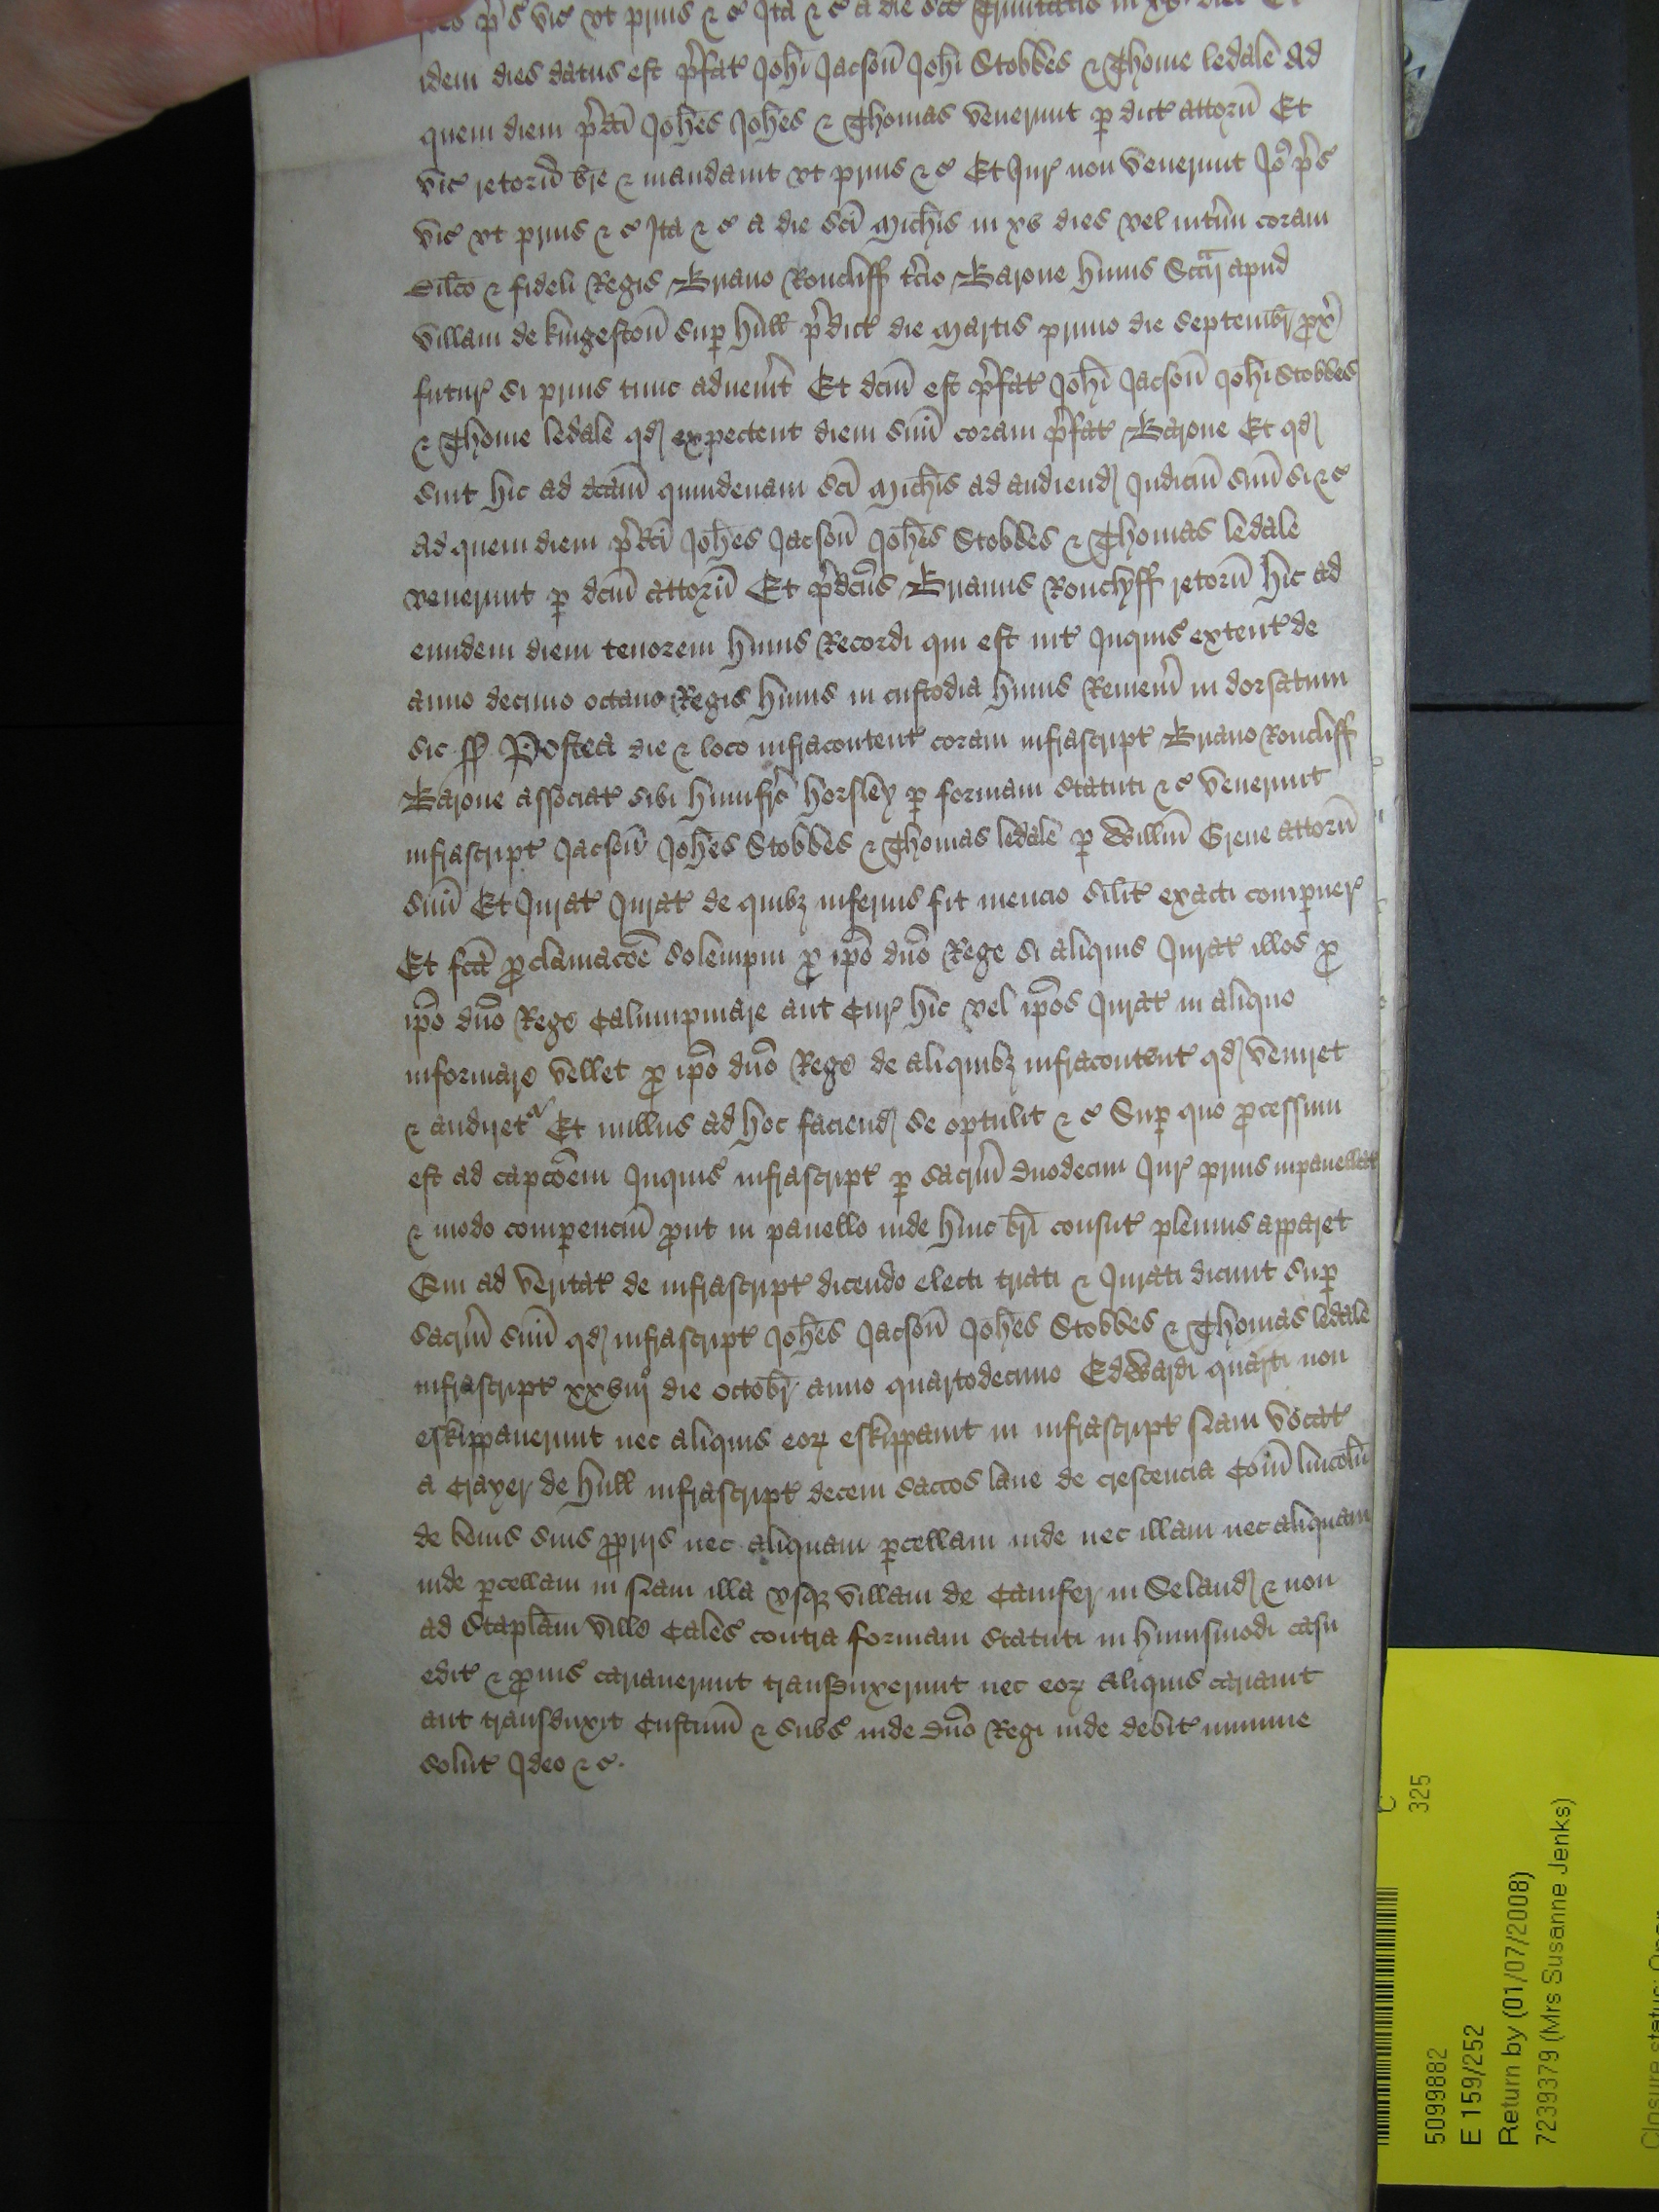 p̄s vic̄ vt prius ⁊ c̄ Ita ⁊ c̄ a die sc̄e Trinitatis in xv dies Et
idem dies datus est p̄fat Joh̄i Jacson̄ Joh̄i Stobbes ⁊ Thome ledale Ad
quem diem p̄dc̄i Joh̄es Joh̄es ⁊ Thomas venerunt p̱ dict attorn̄ Et
vic̄ retorn̄ br̄e ⁊ mandauit vt prius ⁊ c̄ Et Jur̄ non venerunt Jo̊ p̄c̄
vic̄ vt prius ⁊ c̄ Ita ⁊ c̄ a die sc̄i Mich̄is in xv dies vel int̄im coram
dil̄co ⁊ fideli Regis Briano Roucliff t̄cio Barone huius Sccr̄ij apud
villam de kingeston̄ sup̱ hull p̄dict die Martis primo die Septembr̄ px̄
futur̄ si prius tunc aduen̄it Et dc̄m est p̄fat Joh̄i Jacson̄ Joh̄i Stobbes
⁊ Thome ledale qd̄ expectent diem suū coram p̄fat Barone Et qd̄
sint hic ad dc̄am quindenam sc̄i Mich̄is ad audiend̄ Judiciū suū si ⁊ c̄
Ad quem diem p̄dc̄i Joh̄es Jacson̄ Joh̄es Stobbes ⁊ Thomas ledale
venerunt p̱ dc̄m attorn̄ Et p̄dc̄us Brianus Rouclyff retorn̄ hic ad
eundem diem tenorem huius Recordi qui est int̄ Inquis̄ extent̄ de
anno decimo octauo Regis huius in custodia huius Remem̄ in dorsatum
sic ss Postea die ⁊ loco infracontent̄ coram infrascript̄ Briano Roucliff
Barone associat̄ sibi humfr̄o horsley p̱ formam statuti ⁊ c̄ venerunt
infrascript̄ Jacson̄ Joh̄es Stobbes ⁊ Thomas ledale p̱ Willm̄ Grene attorn̄
suū Et Jurat̄ Jurat̄ de quibȝ inferius fit mencio sil̄it exacti comp̱uer̄
Et fc̄a p̱clamac̄oe solempni p̱ ip̄o dn̄o Rege si aliquis Jurat̄ illos p̱
ip̄o dn̄o Rege Calumpniare aut Cur̄ hic vel ip̄os Jurat̄ in aliquo
informare vellet p̱ ip̄o dn̄o Rege de aliquibȝ infracontent̄ qd̄ veniret
⁊ audiretᵃ Et nullus ad hoc faciend̄ se optulit ⁊ c̄ Sup̱ quo p̱cessum
est ad capc̄oem Inquis̄ infrascript̄ p̱ sacr̄m duodecim Jur̄ prius inpanellat̄
⁊ modo comp̱enciū p̱ut in panello inde huic br̄i consut̄ plenius apparet
Qui ad veritat̄ de infrascript̄ dicendo electi triati ⁊ Jurati dicunt sup̱
sacr̄m suū qd̄ infrascript̄ Joh̄es Jacson̄ Joh̄es Stobbes ⁊ Thomas ledale
infrascript̄ xxviijº die Octobr̄ anno quartodecimo Edwardi quarti non
eskippauerunt nec aliquis eoꝝ eskippauit in infrascript̄ nauī vocat̄
a Crayer de hull infrascript̄ decem saccos lane de crescencia Com̄ lincoln̄
de bonis suis p̱prijs nec aliquam p̱cellam inde nec illam nec aliquam
inde p̱cellam in naui illa vsqȝ villam de Camfer in Seland̄ ⁊ non
ad Staplam ville Cales̄ contra formam statuti in huiusmodi casu
edit̄ ⁊ p̱uis̄ cariauerunt transduxerunt nec eoꝝ aliquis cariauit
aut transduxit Custum̄ ⁊ subs̄ inde dn̄o Regi inde debit̄ minime
solut̄ Ideo ⁊ c̄.
C
325
5099882
E 159/252
Return by (01/07/2008)
7239379 (Mrs Susanne Jenks)
Closure status: Open